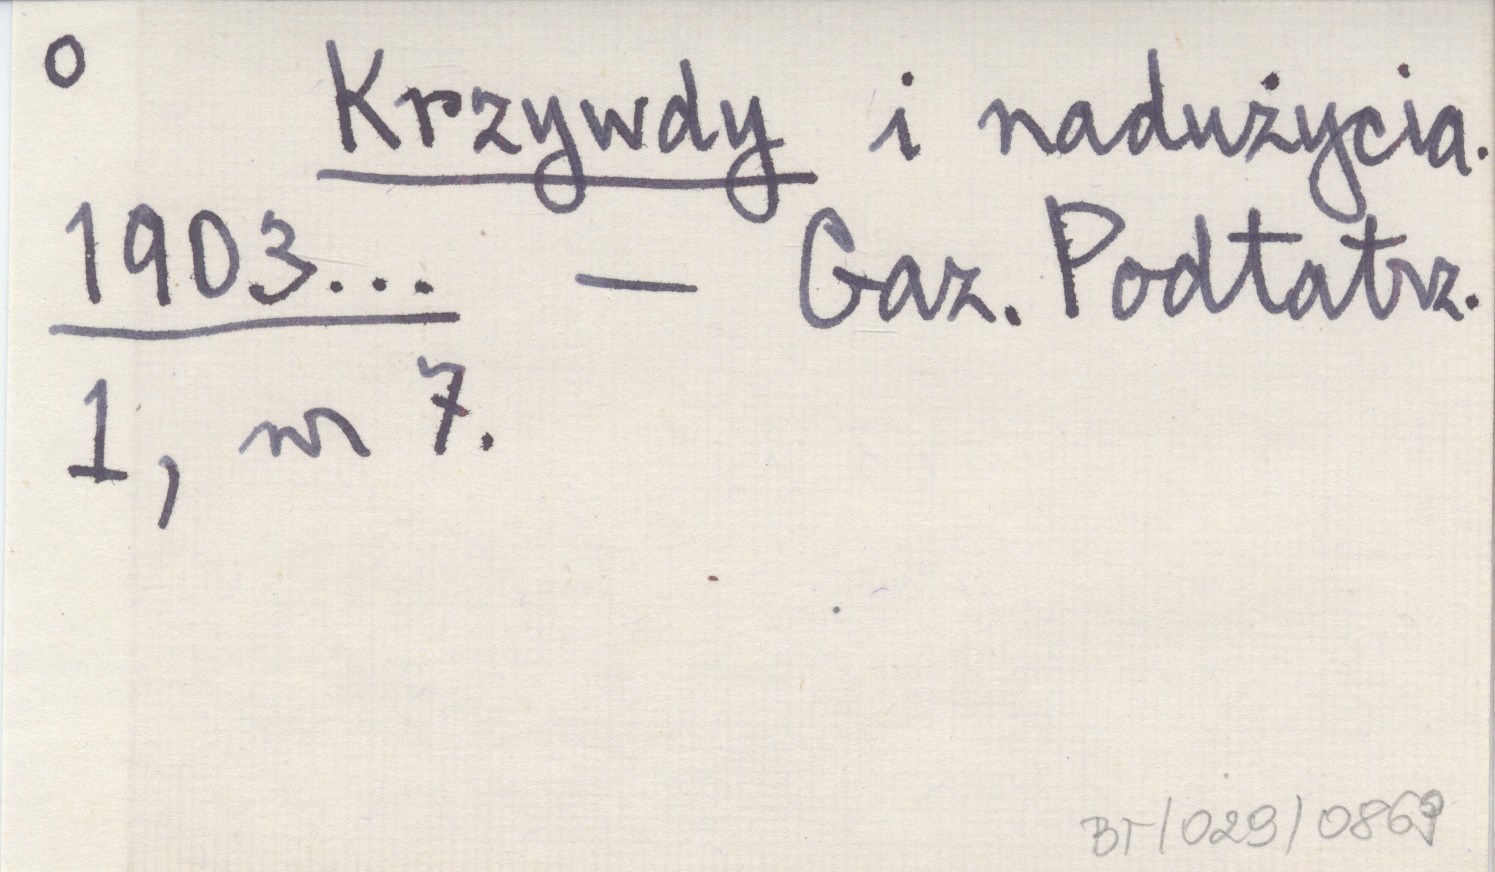 o Krzywdy i nadużycia.
1903... — Gaz. Podtatrz.
1, nr 7.
BT/029/0869